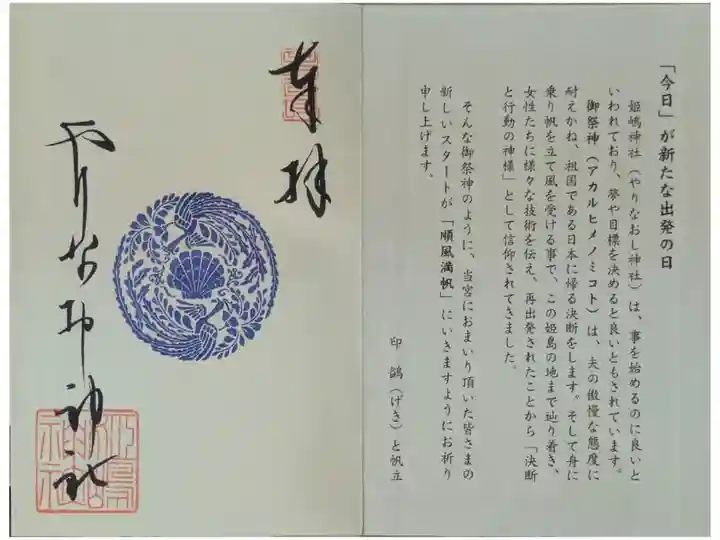 「今日」が新たな出発の日
姫嶋神社（やりなおし神社）は、事を始めるのに良いと
いわれており、夢や目標を決めると良いともされています。
御祭神（アカルヒメノミコト）は、夫の傲慢な態度に
耐えかね、祖国である日本に帰る決断をします。そして舟に
乗り帆を立て風を受ける事で、この姫島の地まで辿り着き、
女性たちに様々な技術を伝え、再出発されたことから「決断
と行動の神様」として信仰されてきました。
そんな御祭神のように、当宮におまいり頂いた皆さまの
新しいスタートが「順風満帆」にいきますようにお祈り
申し上げます。
印 鷁（げき）と帆立
奉拝
やりなおし神社